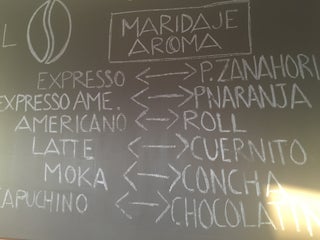 L
MARIDAJE
AROMA
EXPRESSO P. ZANAHORI
EXPRESSO AME. PNARANJA
AMERICANO ROLL
LATTE CUERNITO
MOKA CONCHA
CAPUCHINO CHOCOLATIN